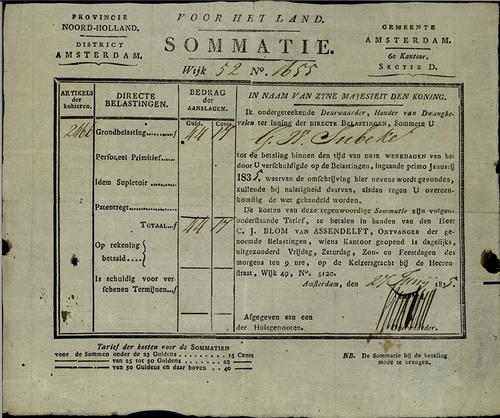 PROVINCIE
NOORD-HOLLAND.
DISTRICT
AMSTERDAM.
VOOR HET LAND.
SOMMATIE.
Wijk 52 No. 1655
GEMEENTE
AMSTERDAM.
6e Kantoor.
SECTIE D.
ARTIKELS
der
kohieren.
DIRECTE
BELASTINGEN.
BEDRAG
der
AANSLAGEN.
Guld. Cents.
Grondbelasting f 44 77
Personeel Primitief
Idem Supletoir
Patentregt
TOTAAL f 44 77
Op rekening
betaald
Is schuldig voor ver-
schenen Termijnen f
IN NAAM VAN ZYNE MAJESTEIT DEN KONING.
Ik ondergeteekende Deurwaarder, Houder van Dwangbe-
velen ter inning der DIRECTE BELASTINGEN, Sommere U
tot de betaling binnen den tijd van DRIE WERKDAGEN van het
door U verschuldigde op de Belastingen, ingaande primo Januarij
1835, waarvan de omschrijving hier nevens wordt gevonden,
zullende bij nalatigheid daarvan, alsdan tegen U overeen-
komstig de wet gehandeld worden.
De kosten van deze tegenwoordige Sommatie zijn volgens
onderstaande Tarief, te betalen in handen van den Heer
C. J. BLOM VAN ASSENDELFT, ONTVANGER der ge-
noemde Belastingen, wiens Kantoor geopend is dagelijks,
uitgezonderd Vrijdag, Zaturdag, Zon- en Feestdagen des
morgens ten 9 ure, op de Keizersgracht bij de Heeren-
straat, Wijk 49, No. 5120.
Amsterdam, den 27 Juny 1835.
Afgegeven aan een
der Huisgenooten.
Deurwaarder.
Tarief der kosten voor de SOMMATIEN
voor de Sommen onder de 25 Guldens 15 Cents
van 25 tot 50 Guldens
van 50 Guldens en daar boven 40
NB. De Sommatie bij de betaling
mede te brengen.